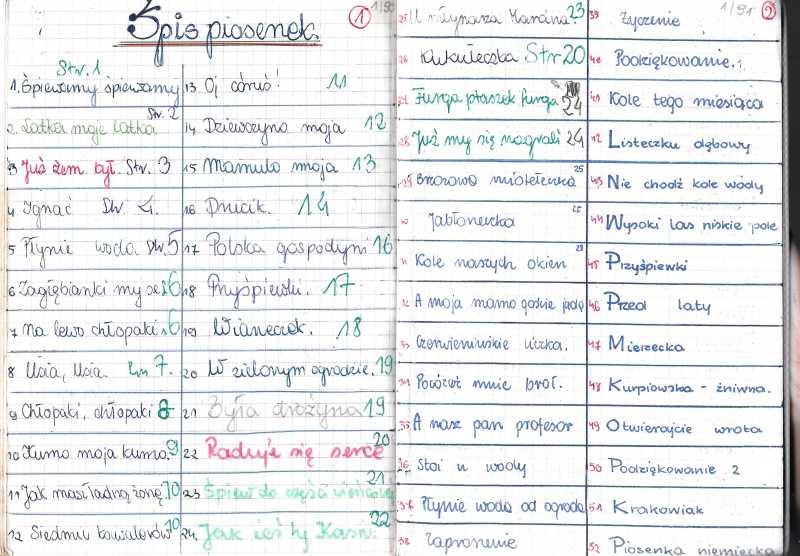 Spis piosenek.
1
1/91
Str. 1
1. Śpiewamy śpiewamy
Str. 2
2. Latka moje latka
3 Już żem był. Str. 3
4 Ignać Str. 4.
5 Płynie woda Str. 5
6 Zagłębianki my se 6
7 Na lewo chłopaki 6
8 Usia, Usia. 7.
9 Chłopaki, chłopaki 8
10 Kumo moja kumo 9
11 Jak masz ładną żonę 10
12 Siedmiu kawalerów 10
13 Oj córuś! 11
14 Dziewczyno moja 12
15 Mamulo moja 13
16 Drucik. 14
17 Polska gospodyni 16
18 Przyśpiewki. 17
19 Wianeczek. 18
20 W zielonym ogrodzie. 19
21 Była drożyna 19
22 Raduje się serce 20
23 Śpiew do części 21
24 Jak ześ ty Kasiu. 22
1/91
2
25 U młynarza Maryna 23
26 Kukułeczka Str 20
27 Furga ptaszek furga 24
28 Już my się nagrali 24
29 Brzozowa miotełeczka 25
30 Jabłoneczka 25
31 Kole naszych okien 28
32 A moja mamo goście jadą
33 Czerwieniuśkie liczka.
34 Pocóżeś mnie brał.
35 A nasz pan profesor
36 Stoi u wody
37 Płynie woda od ogroda
38 Zaproszenie
39 Życzenie
40 Podziękowanie. 1
41 Kole tego miesiąca
42 Listeczku dębowy
43 Nie chodź kole wody
44 Wysoki las niskie pole
45 Przyśpiewki
46 Przed laty
47 Mierzecka
48 Kurpiowska - żniwna.
49 Otwierajcie wrota
50 Podziękowanie 2
51 Krakowiak
52 Piosenka niemiecka